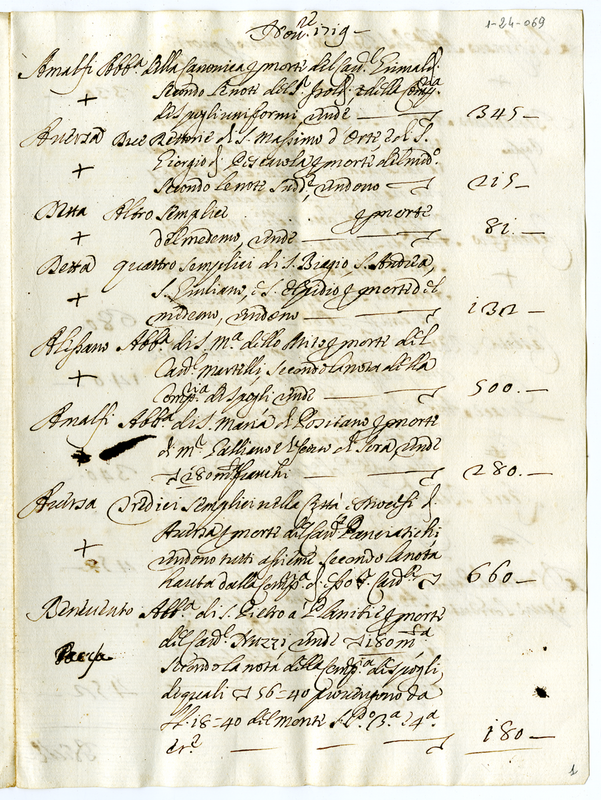 1-24-069
Nov.re 1719 —
Amalfi Abb.a della Canonica p morte del Card.l Grimaldi
+ secondo le note del S.r e della Comp.a
di spogli uniformi, rende — 345 —
Aversa Due Rettorie di S. Massimo d'Orta, e di S.
+ Giorgio di Pescarola p morte del med.o
secondo le note sud.e, rendono — 215 —
Detta Altro semplice p morte
+ del medemo, rende — 81. —
Detta quattro semplici di S. Biagio S. Andrea,
+ S. Giuliano, e S. Egidio p morte del
medemo, rendono — 132 —
Alessano Abb.a di S. M.a dello Mito p morte del
+ Card.l Martelli secondo la nota della
Comp.a di spogli rende — 500. —
Amalfi Abb.a di S. Maria di Positano p morte
di m.r Galliano Vescovo di Sora rende
180 m.ta franchi — 280. —
Aversa Tredici semplici nella Città e Diocesi di
+ Aversa p morte del Card.l Panciatichi
rendono tutti assieme secondo la nota
havuta dalla Comp.a di Card.l 660 —
Benevento Abb.a di S. Pietro a Planitie p morte
del Card.l Nuzzi rende 180 m.ta
secondo la nota della Comp.a di spogli,
de quali 56-40 provengono da
ll. 18-40 del monte S. P.o 3.a 4.a
er.e — 180 —
1